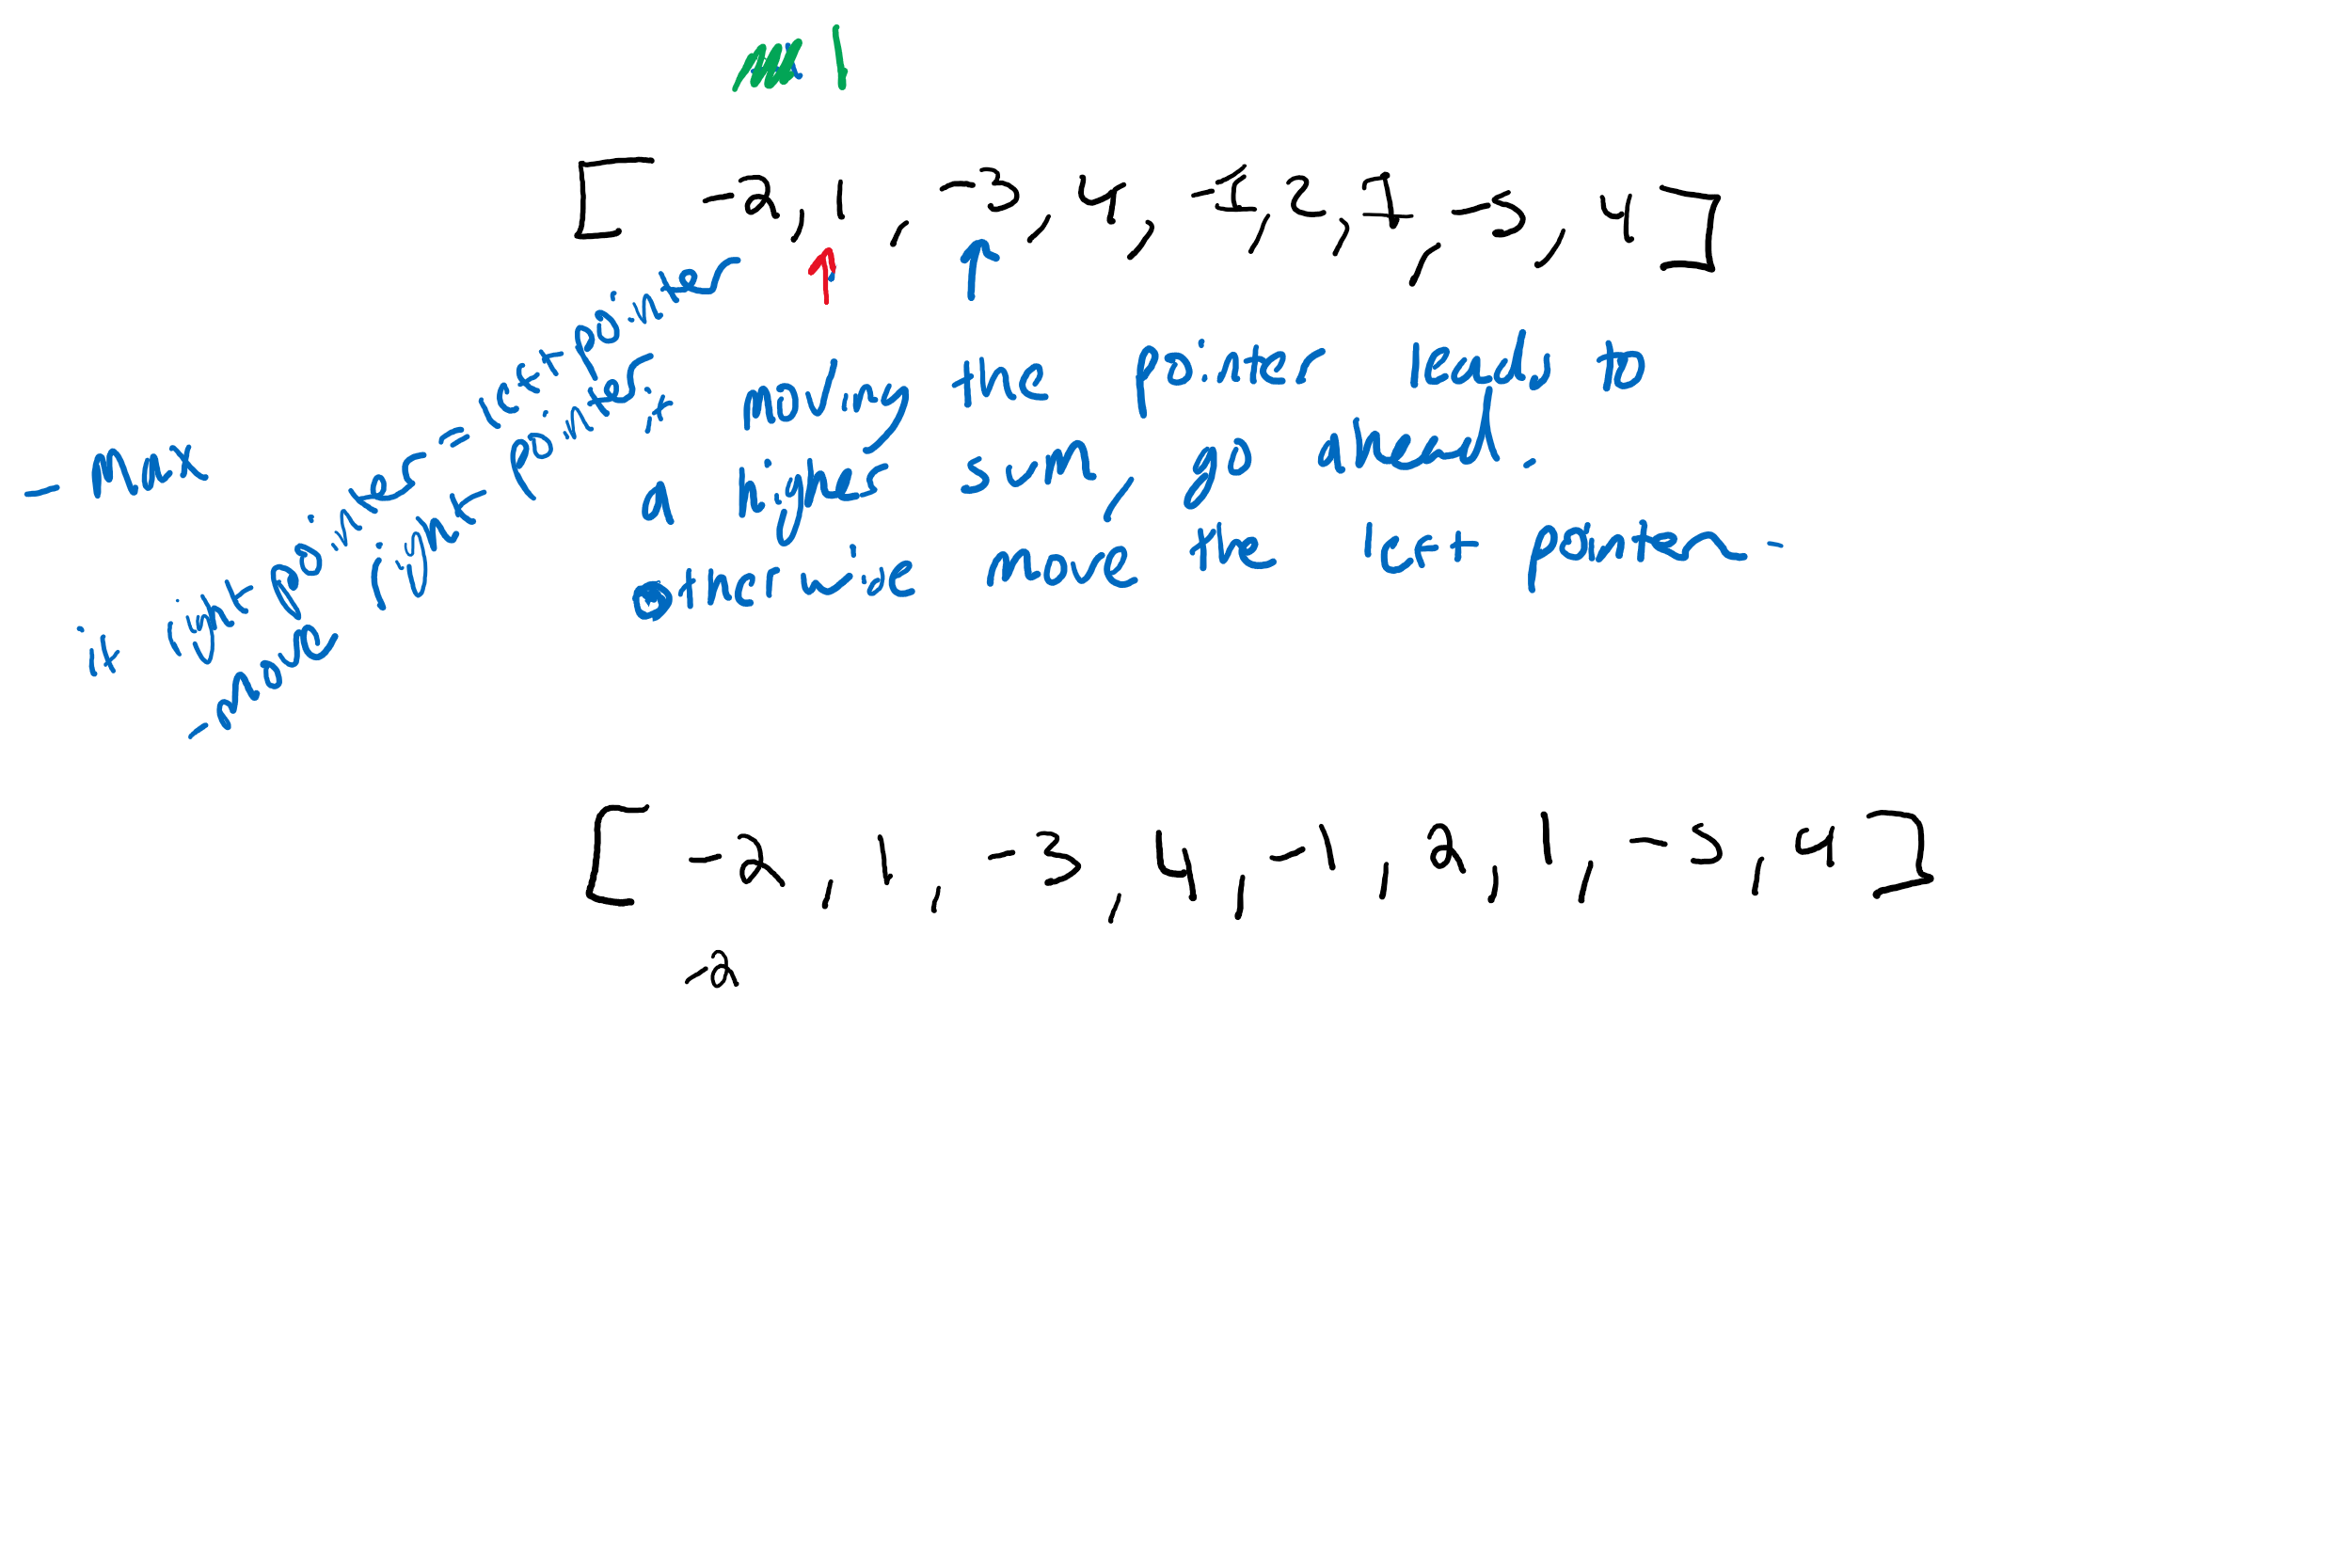 1
[ -2, 1, -3, 4, -1, 2, 1, -5, 4 ]
- Max
if right pointer = left pointer
- move right pointer.
if moving the pointer leads to
a higher sum, go ahead.
otherwise move the left pointer -
[ -2, 1, -3, 4, -1, 2, 1, -5, 4 ]
-2